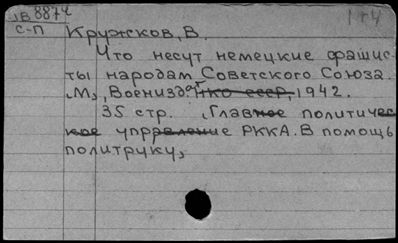 1В8874
1т4
С-П
Кружков, В.
Что несут немецкие фашис-
ты народам Советского Союза.
М., Воениздат НКО СССР, 1942.
35 стр. (Главное политичес-
кое упрравление РККА. В помощь
политруку)